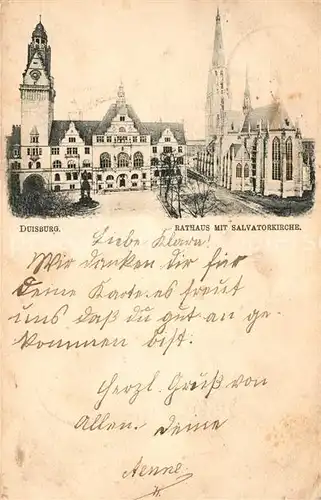 DUISBURG.
RATHAUS MIT SALVATORKIRCHE.
Liebe Klara!
Wir danken dir für
deine Karte. es freut
uns daß du gut an ge-
kommen bist.
Herzl. Gruß von
Allen. deine
Aenne.